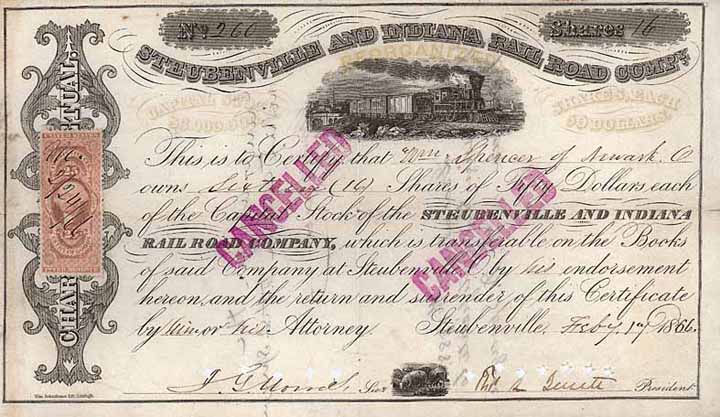 No 260
Shares 16
STEUBENVILLE AND INDIANA RAIL ROAD COMPY.
REORGANIZED
CAPITAL STOCK
SHARES, EACH
50 DOLLARS.
CHARTER PERPETUAL,
This is to Certify that Wm Spencer of Newark. O
owns Sixteen (16) Shares of Fifty Dollars each
of the Capital Stock of the STEUBENVILLE AND INDIANA
RAIL ROAD COMPANY, which is transferable on the Books
of said Company at Steubenville O. by his endorsement
hereon, and the return and surrender of this Certificate
by him or his Attorney. Steubenville, Feby 1866.
CANCELLED
CANCELLED
Secy
President